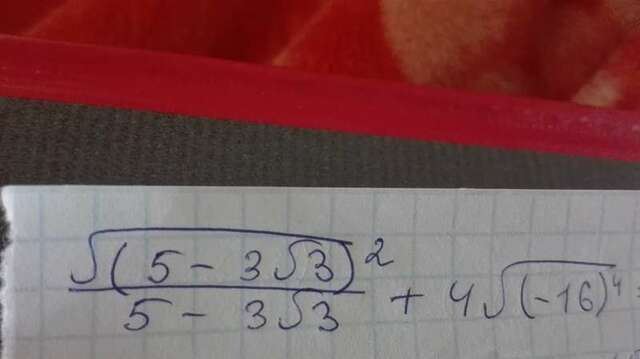 √(5 - 3√3)²
5 - 3√3 + 4√(-16)⁴ =